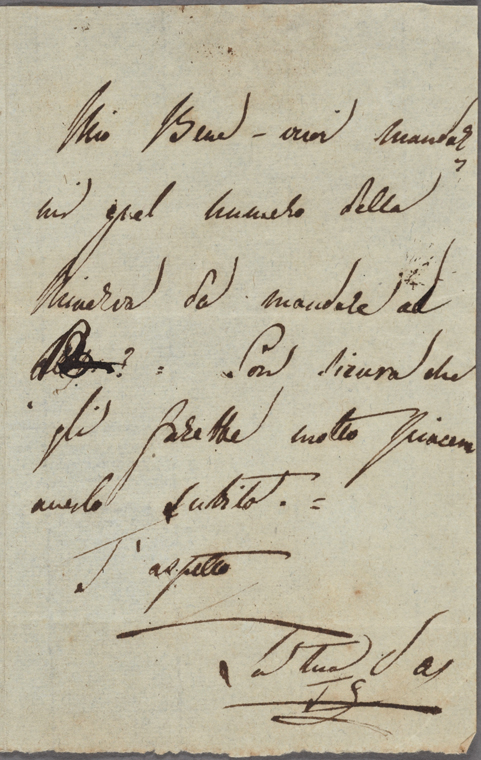 Mio Bene – vuoi mandar
mi quel numero della
Minerva da mandare ad
? = Son sicura che
gli farebbe molto piacere
averlo subito. =
T'aspetto
La tua
TG